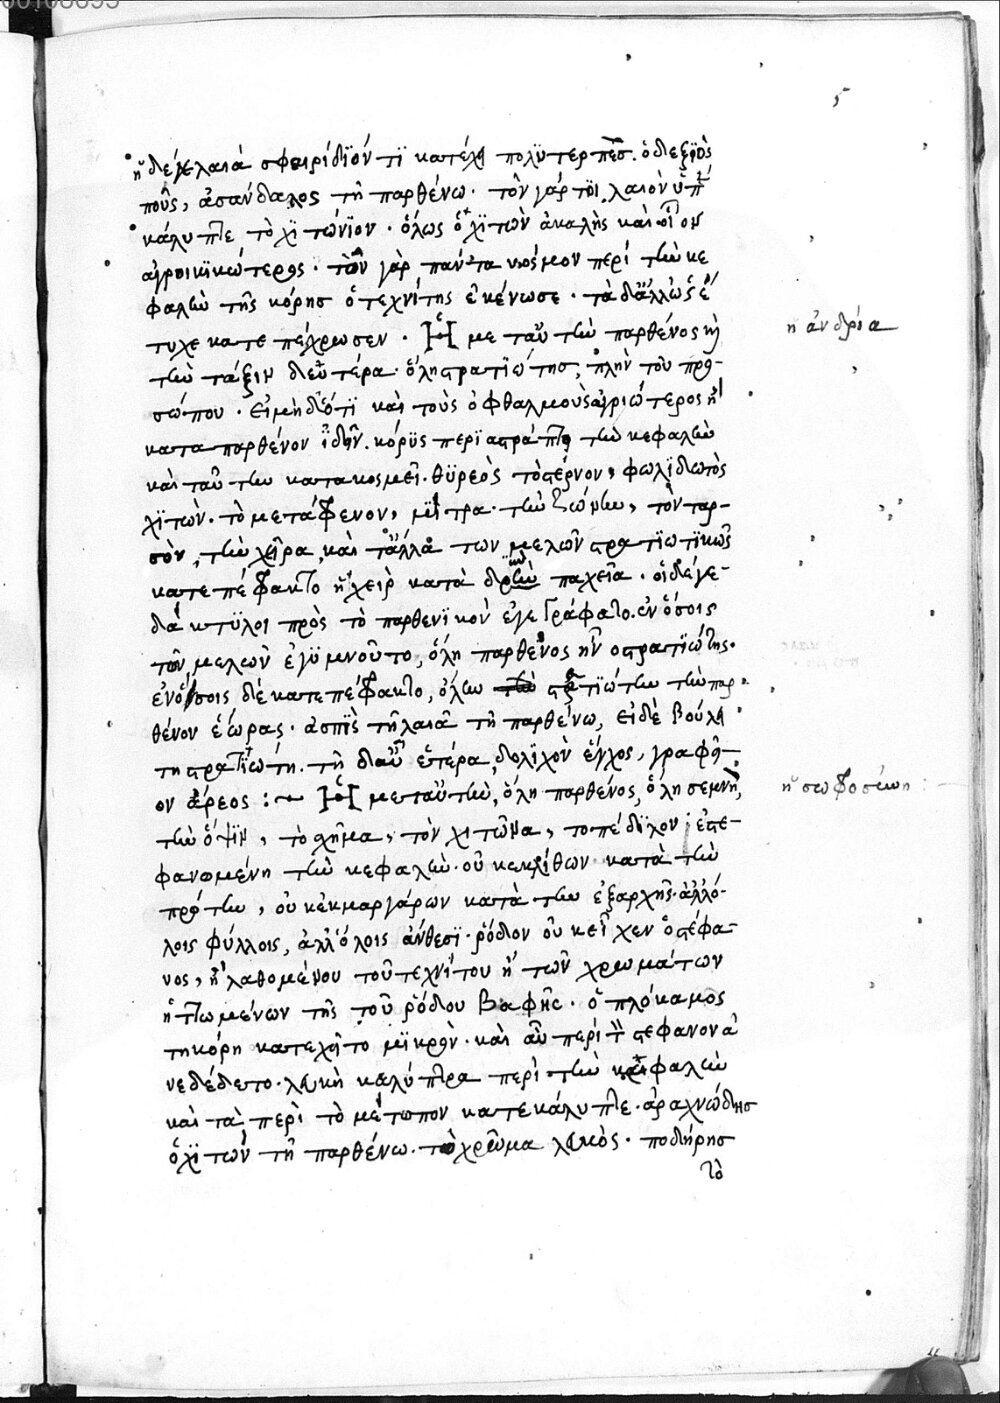 5
ἡ δέ γε λαιὰ σφαιρίδϊόν τϊ κατέχει πολϋτερπέσ. ὁ δεξϊὸς
ποῦς, ἀσάνδαλος τῇ παρθένω. τὸν γάρ τοι λαιὸν ὑπ
κάλυπτε τὸ χϊτώνϊον. ὅλως ὁ χϊτὼν ἀκαλὴς καὶ οἷον
ἀγροικϊκώτερος. τὸν γὰρ πάντα κόσμον περὶ τὴν κε
φαλὴν τῆς κόρησ ὁ τεχνίτης ἐκένωσε. τὰ δ' ἄλλ' ὡς ἔ
τυχε κατεπέχρωσεν. Ἡ μετ' αὐτὴν παρθένος ἡ
ἡ ἀνδρία
τὴν τάξιν δευτέρα. ὅλη στρατϊώτησ, πλὴν τοῦ προ-
σώπου. εἰ μὴ διότϊ καὶ τοὺς ὀφθαλμοὺς ἀγριώτερος ἢ
κατὰ παρθένον ἰδεῖν. κόρϋς περϊαστράπτει τὴν κεφαλὴν
καὶ ταύτην κατακοσμεῖ. θϋρεὸς τὸ στέρνον, φωλϊδωτὸς
χϊτὼν. τὸ μετάφρενον, μϊτρα. τὴν ζώνην, τὸν ταρ-
σὸν, τὴν χεῖρα, καὶ τἄλλα τῶν μελῶν στρατϊωτϊκῶς
κατεπέφρακτο ἡ χεὶρ κατὰ παχεῖα. οἱ δέ γε
δάκτϋλοι πρὸς τὸ παρθενϊκὸν ἐγεγράφατο. ἐν ὅσοις
τῶν μελῶν ἐγϋμνοῦτο, ὅλη παρθένος ἦν ὁ στρατϊώτης.
ἐν ὅσοις δὲ κατεπέφρακτο, ὅλην στρατϊώτην τὴν παρ
θένον ἑώρας. ἀσπϊς τῇ λαιᾷ τῇ παρθένω, εἰ δὲ βούλει
τῇ στρατϊώτη. τῇ δ' αὖ ἑτέρα, δολϊχὸν ἔγχος, γραφεῖ-
ον ἄρεος :~ Ἡ μετ' αὐτὴν, ὅλη παρθένος, ὅλη σεμνὴ,
ἡ σωφροσύνη :
τὴν ὄψϊν, τὸ σχῆμα, τὸν χιτῶνα, τὸ πέδϊλον ἐστε-
φανωμένη τὴν κεφαλὴν. οὐκ ἐκ λίθων κατὰ τὴν
πρώτην, οὐκ ἐκ μαργάρων κατὰ τὴν ἐξαρχῆς. ἀλλ' ὅ-
λοις φύλλοις, ἀλλ' ὅλοις ἄνθεσϊ. ῥόδον οὐκ εἶχεν ὁ στέφα-
νος, ἢ λαθομένου τοῦ τεχνίτου ἢ τῶν χρωμάτων
ἡττωμένων τῆς τοῦ ῥόδου βαφῆς. ὁ πλόκαμος
τῇ κόρη κατεχεῖτο μϊκρὸν. καὶ αὖ περὶ τὸν στέφανον ἀ
νεδέδετο. λευκὴ καλύπτρα περὶ τὴν κεφαλὴν
καὶ τὰ περὶ τὸ μέτωπον κατεκάλυπτε. ἀραχνώδησ
ὁ χϊτὼν τῇ παρθένω. τὸ χρῶμα λευκὸς. ποδήρησ
τὸ